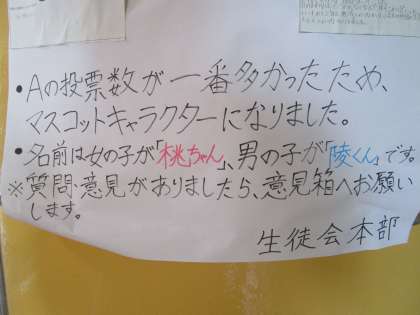 ・Aの投票数が一番多かったため、
マスコットキャラクターになりました。
・名前は女の子が「桃ちゃん」、男の子が「陵くん」です。
※質問・意見がありましたら、意見箱へお願い
します。
生徒会本部